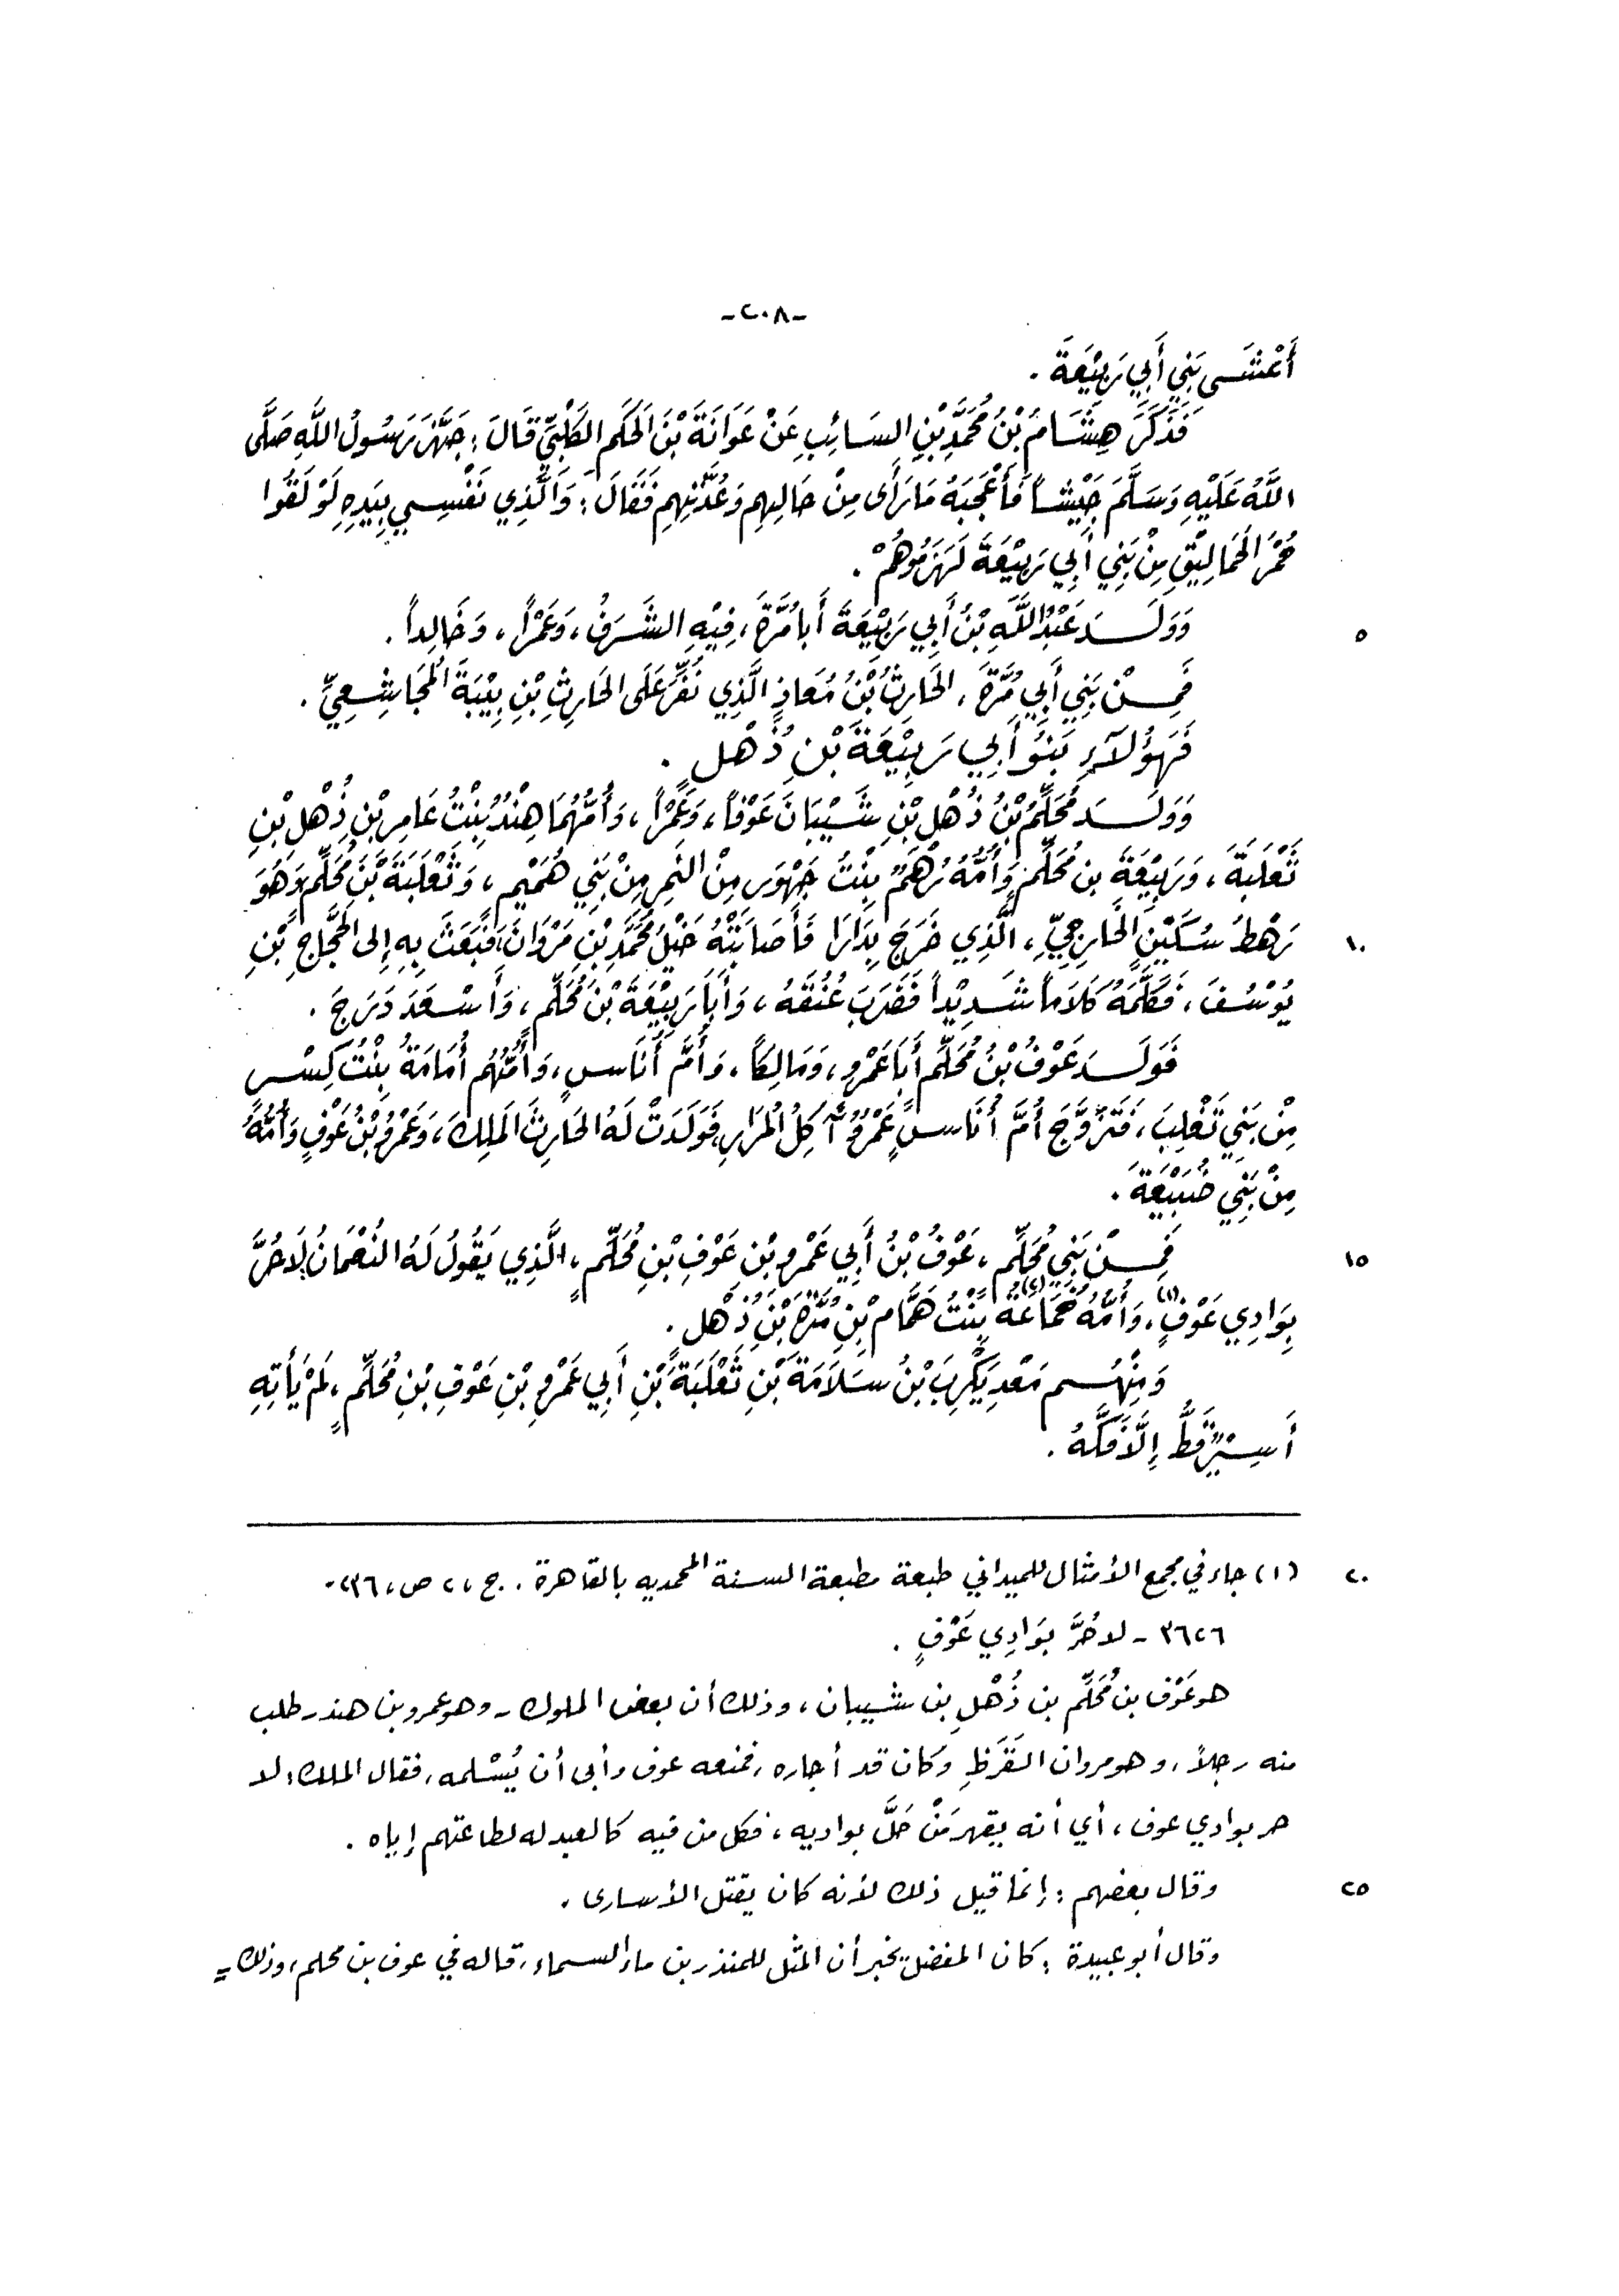 -٢٠٨-
أَعْشَى بَنِي أَبِي رَبِيْعَةَ .
فَذَكَرَ هِشَامُ بْنُ مُحَمَّدِ بْنِ السَائِبِ عَنْ عَوَانَةَ بْنِ الحَكَمِ الكَلْبِيِّ قَالَ : جَهَّزَ رَسُولُ اللَّهِ صَلَّى
اللَّهُ عَلَيْهِ وَسَلَّمَ جَيْشاً فَأَعْجَبَهُ مَا رَأَى مِنْ حَالِهِم وَعُدَّتِهِم فَقَالَ : وَالَّذِي نَفْسِي بِيَدِهِ لَوْ لَقُوا
حُمْرَ الحَمَالِيْقِ مِنْ بَنِي أَبِي رَبِيْعَةَ لَهَزَمُوهُمْ .
٥ وَوَلَــدَ عَبْدُ اللَّهِ بْنُ أَبِي رَبِيْعَةَ أَبَا مُرَّةَ ، فِيْهِ الشَرَفُ ، وَعَمْراً ، وَخَالِداً .
فَمِــنْ بَنِي أَبِي مُرَّةَ ، الحَارِثُ بْنُ مُعَاذٍ الَّذِي نُفِّرَ عَلَى الحَارِثِ بْنِ بِيْبَةَ المُجَاشِعِيِّ .
فَهَؤُلَاءِ بَنُو أَبِي رَبِيْعَةَ بْنِ ذُهْلٍ .
وَوَلَــدَ مُحَلِّمُ بْنُ ذُهْلِ بْنِ شَيْبَانَ عَوْفاً ، وَعَمْراً ، وَأُمُّهُمَا هِنْدُ بِنْتُ عَامِرِ بْنِ ذُهْلِ بْنِ
ثَعْلَبَةَ ، وَرَبِيْعَةَ بن مُحَلِّمٍ وَأُمُّهُ رُهْمٌ بِنْتُ جَهْوَرٍ مِنَ النَمِرِ مِنْ بَنِي هُمَيْمٍ ، وَثَعْلَبَةَ بْنَ مُحَلِّمٍ وَهُوَ
١٠ رَهْطُ سُكَيْنٍ الخَارِجِيِّ ، الَّذِي خَرَجَ بِدَارَا فَأَصَابَتْهُ خَيْلُ مُحَمَّدِ بْنِ مَرْوَانَ ، فَبَعَثَ بِهِ إِلَى الحَجَّاجِ بْنِ
يُوْسُفَ ، فَكَلَّمَهُ كَلَاماً شَدِيْداً فَضَرَبَ عُنُقَهُ ، وَأَبَا رَبِيْعَةَ بْنَ مُحَلِّمٍ ، وَأَسْعَدَ دَرَجَ .
فَوَلَــدَ عَوْفُ بْنُ مُحَلِّمٍ أَبَا عَمْرٍو ، وَمَالِكاً ، وَأُمَّ أُنَاسٍ ، وَأُمُّهُم أُمَامَةُ بِنْتُ كِسْرٍ
مِنْ بَنِي تَغْلِبَ ، فَتَزَوَّجَ أُمَّ أُنَاسٍ عَمْرٌو آكِلُ المُرَارِ فَوَلَدَتْ لَهُ الحَارِثَ المَلِكَ ، وَعَمْرُو بْنُ عَوْفٍ وَأُمُّهُ
مِنْ بَنِي ضُبَيْعَةَ .
١٥ فَمِــنْ بَنِي مُحَلِّمٍ ، عَوْفُ بْنُ أَبِي عَمْرِو بْنِ عَوْفِ بْنِ مُحَلِّمٍ ، الَّذِي يَقُولُ لَهُ النُعْمَانُ لَا حُرَّ
بِوَادِي عَوْفٍ(١)، وَأُمُّهُ جُمَاعَةُ(٢) بِنْتُ هَمَّامِ بْنِ مُرَّةَ بْنِ ذُهْلٍ .
وَمِنْهُــم مَعْدِ يْكَرِبَ بْنُ سَلَامَةَ بْنِ ثَعْلَبَةَ بْنِ أَبِي عَمْرِو بْنِ عَوْفِ بْنِ مُحَلِّمٍ ، لَمْ يَأْتِهِ
أَسِيْرٌ قَطُّ إِلَّا فَكَّهُ .
٢٠ (١) جاء في مجمع الأمثال للميداني طبعة مطبعة السنة المحمديه بالقاهرة . ج ، ٢ ص ، ٢٣٦ -
٣٦٢٦ - لا حُرَّ بِوَادِي عَوْفٍ .
هو عَوْف بن مُحَلِّم بن ذُهْلِ بن شيبان ، وذلك أن بعض الملوك - وهو عمرو بن هند - طلب
منه رجلاً ، وهو مروان القَرَظِ وكان قد أجاره ، فمنعه عوف وأبى أن يُسْلمه ، فقال الملك : لا
حر بوادي عوف ، أي أنه يقهر مَنْ حَلَّ بواديه ، فكل من فيه كالعبد له لطاعتهم إياه .
٢٥ وقال بعضهم : إنما قيل ذلك لأنه كان يقتل الأسارى .
وقال أبو عبيدة : كان المفضل يخبر أن المثل للمنذر بن ماء السماء ، قاله في عوف بن محلم ، وذلك =